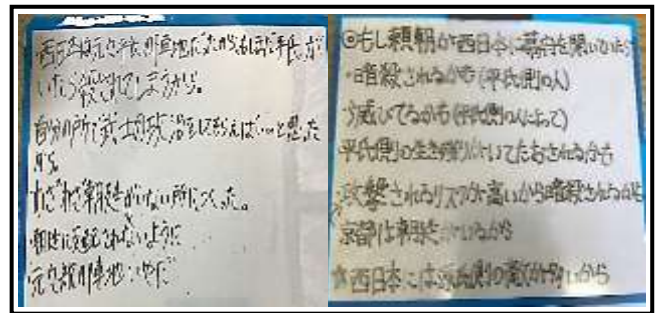 ・西日本は元々平氏の陣地だったからもしまだ平氏が
いたら殺されてしまうから。
自分の所で武士の政治をしてもらえばいいと思った
から
わざわざ朝廷がいない所につくった。
・朝廷に支配されないように
元々敵の陣地いやだ
◎もし頼朝が西日本に幕府を開いていたら
・暗殺されるかも(平氏側の人)
滅びてるかも(平氏側の人によって)
・平氏側の生き残りがいてたおされるかも
攻撃されるリスクが高いから暗殺されるかも
京都は朝廷がいるから
西日本には源氏側の